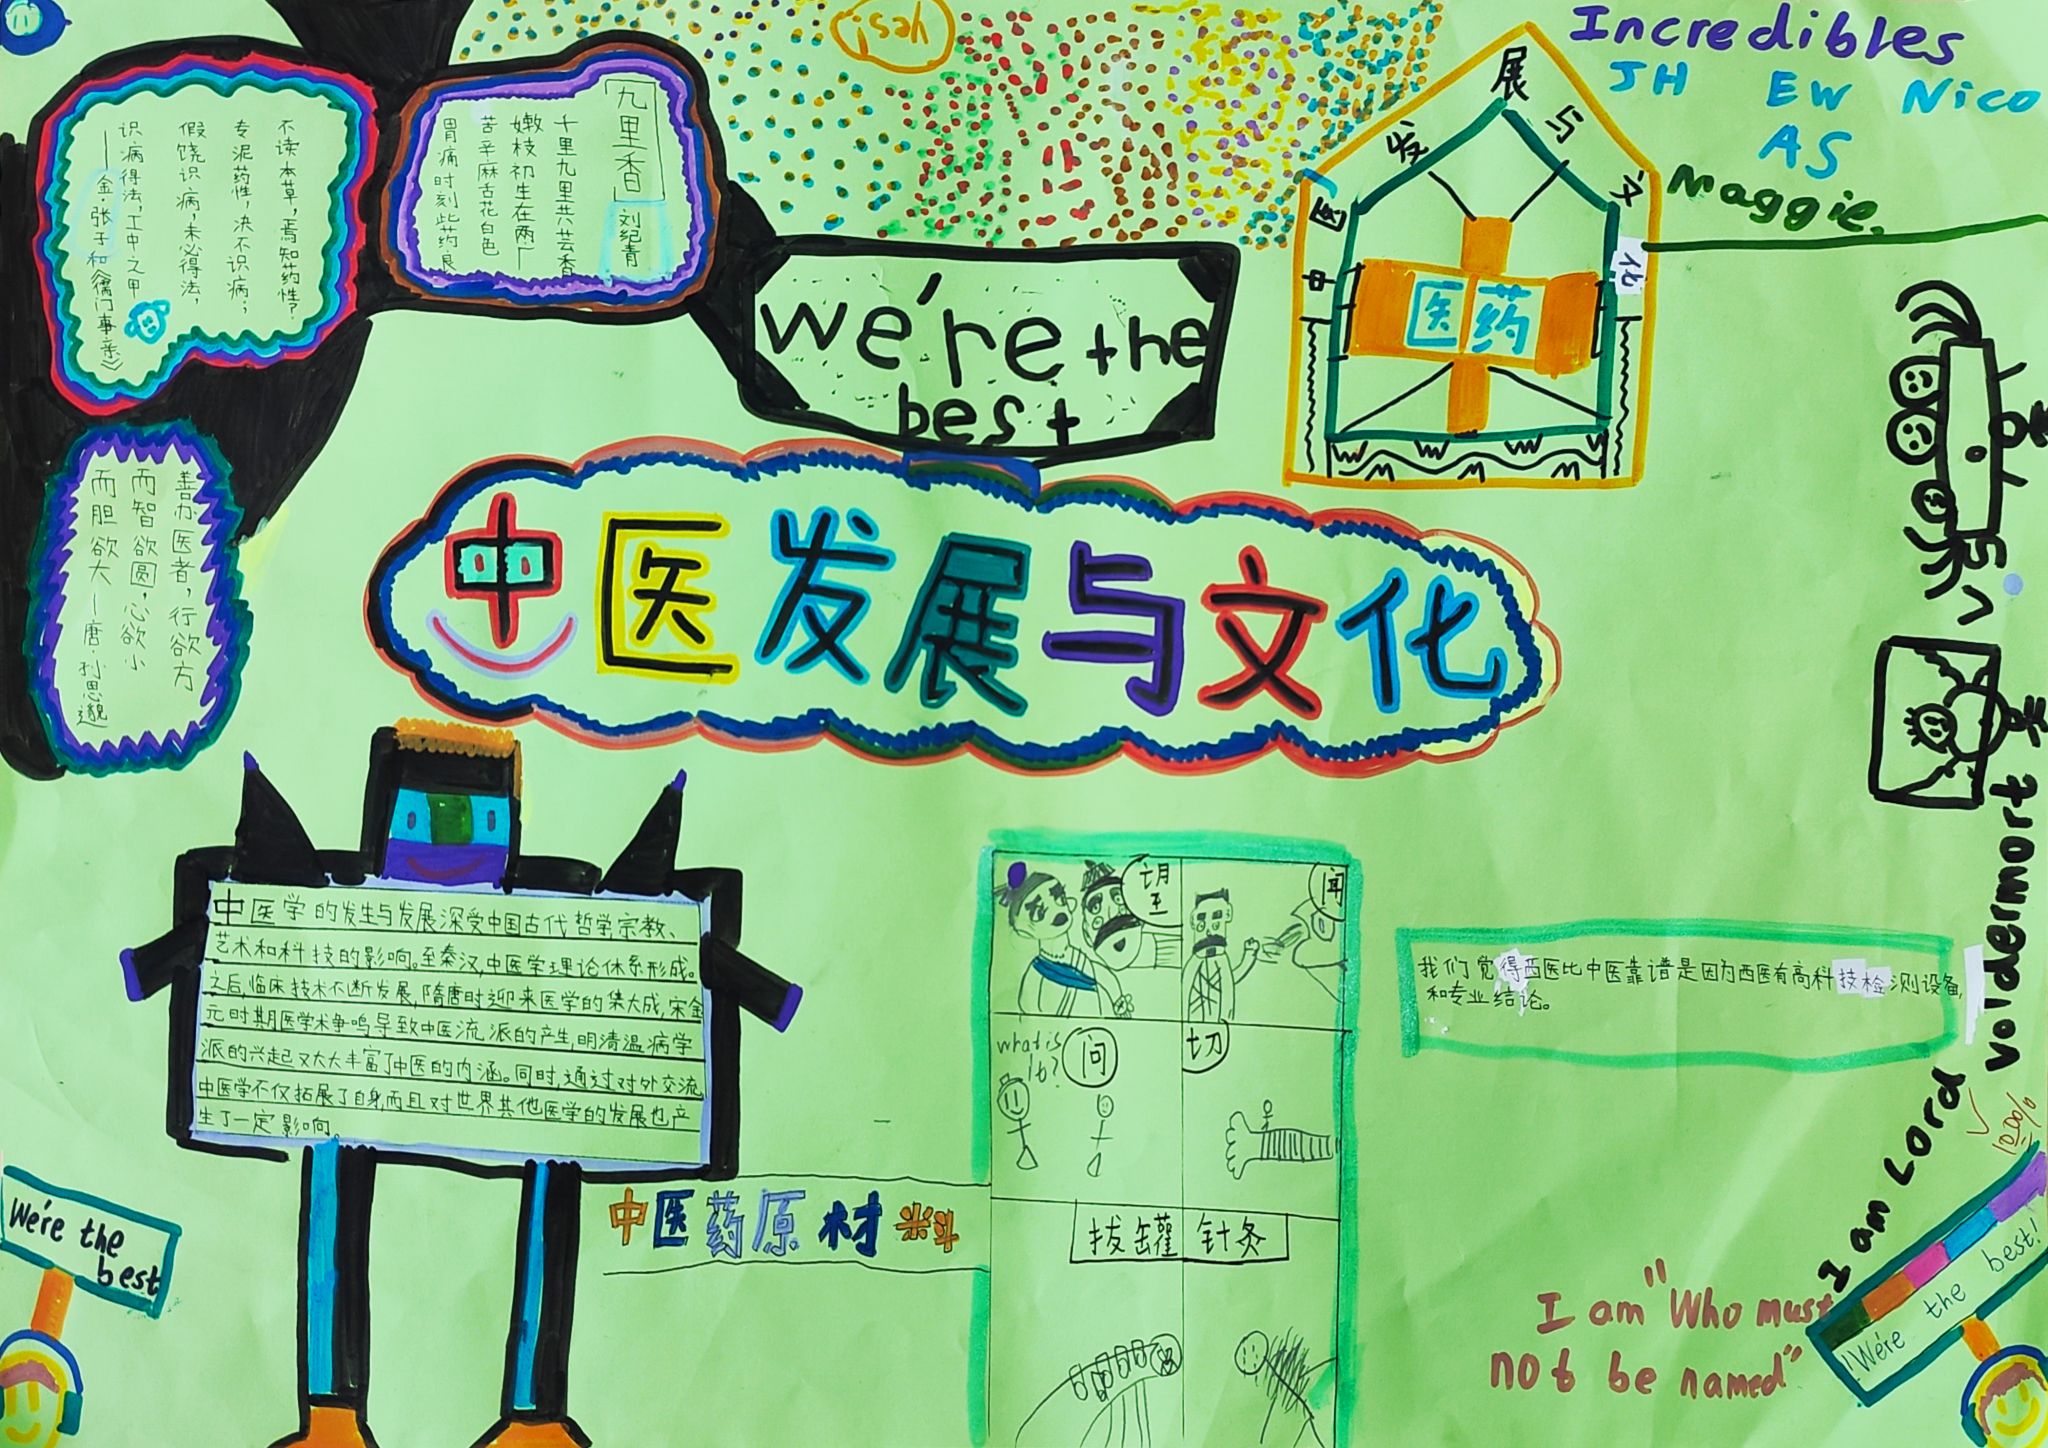 jsah
Incredibles
JH EW Nico
AS
Maggie.
不读本草，焉知药性？
专泥药性，决不识病；
假饶识病，未必得法，
识病得法，工中之甲
——金·张子和《儒门事亲》
「九里香」刘纪青
千里九里共芸香
嫩枝初生在两广
苦辛麻舌花白色
胃痛时刻此药良
善亦医者，行欲方
而智欲圆，心欲小
而胆欲大—唐·孙思邈
we're the
best
中医发展与文化
医药
中医发展与文化
中医学的发生与发展深受中国古代哲学宗教、
艺术和科技的影响。至秦汉，中医学理论体系形成。
之后，临床技术不断发展，隋唐时迎来医学的集大成，宋金
元时期医学术争鸣导致中医流派的产生，明清温病学
派的兴起又大大丰富了中医的内涵。同时，通过对外交流，
中医学不仅拓展了自身，而且对世界其他医学的发展也产
生了一定影响。
中医药原材料
望
闻
what is
it?
问
切
拔罐 针灸
我们觉得西医比中医靠谱是因为西医有高科技检测设备，
和专业结论。
I am Lord voldermort
100%
I am "Who must
not be named"
We're the
best
!We're the best!